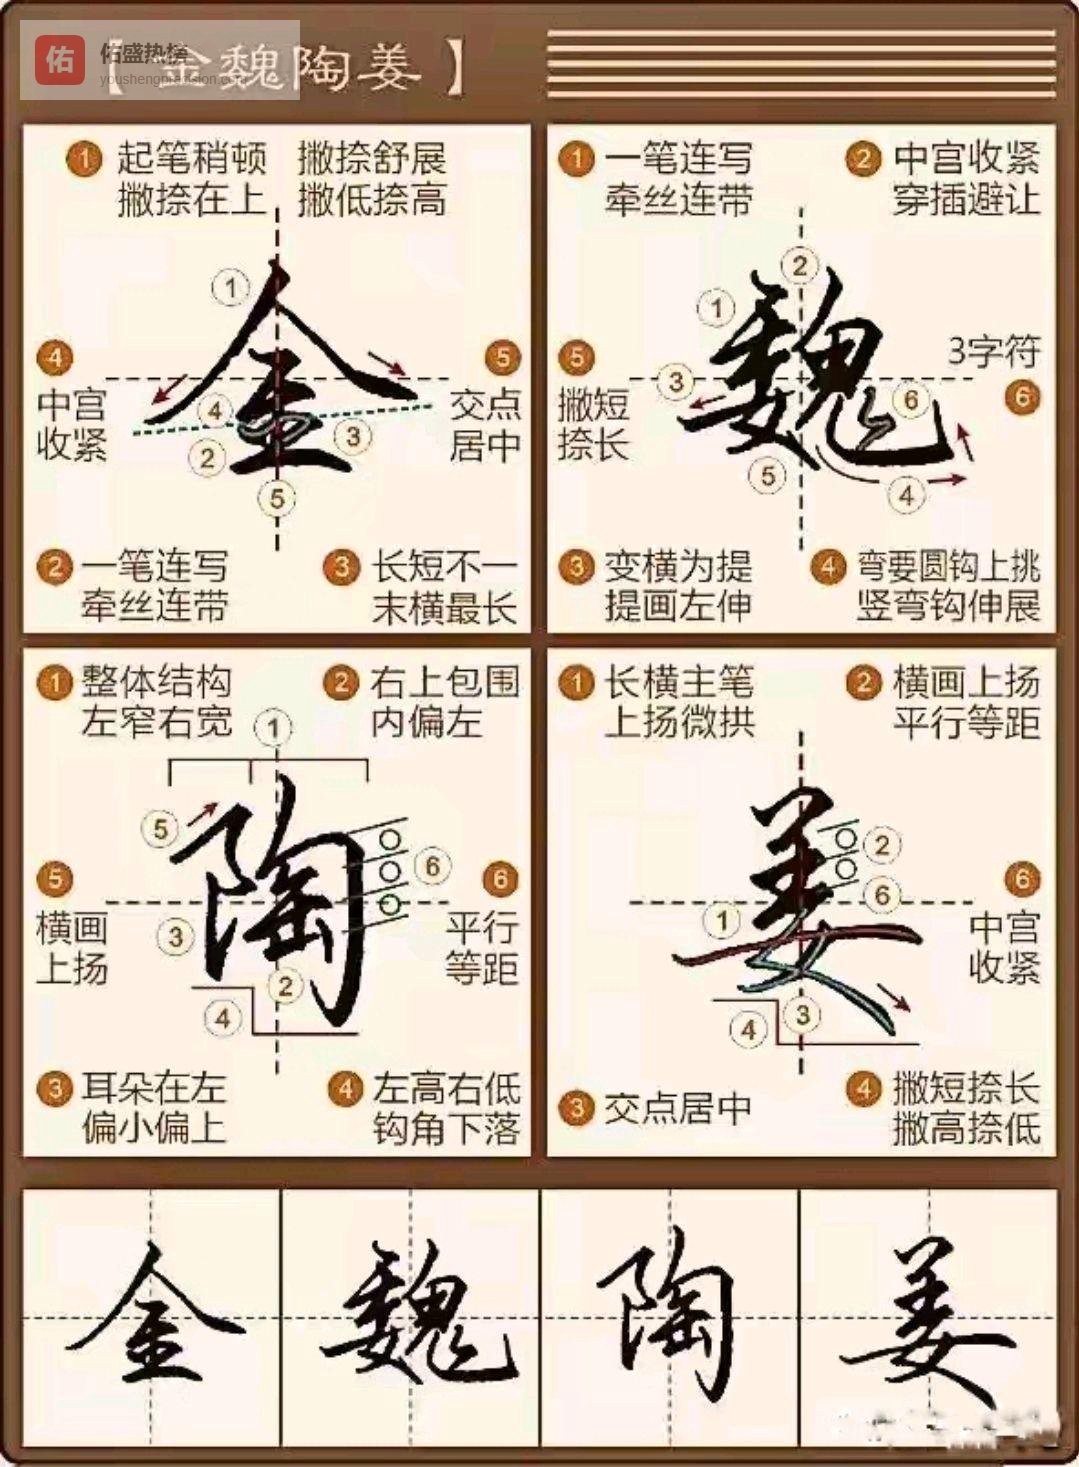 佑 佑盛热榜
youshengpransion.com
【金魏陶姜】
① 起笔稍顿 撇捺舒展
撇捺在上 撇低捺高
①
④
中宫
收紧
⑤
交点
居中
④
②
③
⑤
② 一笔连写
牵丝连带
③ 长短不一
末横最长
金
① 一笔连写
牵丝连带
② 中宫收紧
穿插避让
②
①
⑤
撇短
捺长
③
3字符
⑥
⑥
⑤
④
③ 变横为提
提画左伸
④ 弯要圆钩上挑
竖弯钩伸展
魏
① 整体结构
左窄右宽
② 右上包围
内偏左
①
⑤
⑥
⑤
横画
上扬
③
⑥
平行
等距
②
④
③ 耳朵在左
偏小偏上
④ 左高右低
钩角下落
陶
① 长横主笔
上扬微拱
② 横画上扬
平行等距
②
⑥
①
⑥
中宫
收紧
③
④
③ 交点居中
④ 撇短捺长
撇高捺低
姜
金 魏 陶 姜